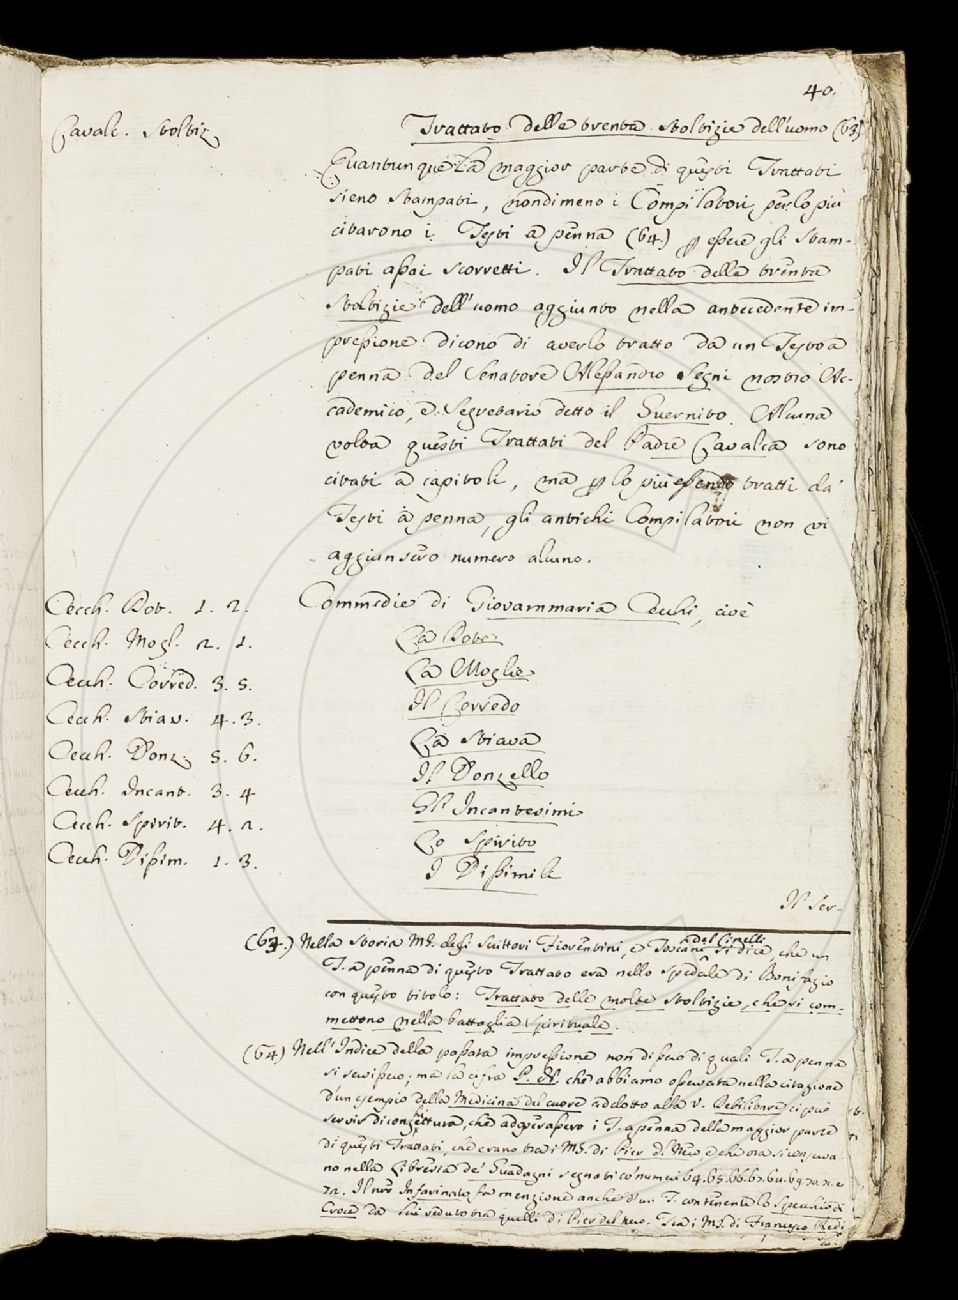 40.
Cavalc. Stoltiz.
Trattato delle trenta Stoltizie dell'uomo (63)
Quantunque la maggior parte di questi Trattati
sieno stampati, nondimeno i Compilatori per lo più
citarono i Testi a penna (64) p essere gli stam-
pati assai scorretti. Il Trattato delle trenta
Stoltizie dell'uomo aggiunto nella antecedente im-
pressione dicono di averlo tratto da un Testo a
penna del Senatore Alessandro Segni nostro Ac-
cademico, e Segretario detto il Guernito. Alcuna
volta questi Trattati del Padre Cavalca sono
citati a capitoli, ma p lo più essendo tratti da'
Testi a penna, gli antichi Compilatori non vi
aggiunsero numero alcuno.
Commedie di Giovammaria Cecchi, cioè
Cecch. Dot. 1. 2.
La Dote
Cecch. Mogl. 2. 1.
La Moglie
Cecch. Corred. 3. 5.
Il Corredo
Cecch. Stiav. 4. 3.
La Stiava
Cecch. Donz. 5. 6.
Il Donzello
Cecch. Incant. 3. 4
Gl' Incantesimi
Cecch. Spirit. 4. 2.
Lo Spirito
Cecch. Dissim. 1. 3.
I Dissimili
Il Ser-
(63.) Nella Storia MS. degli Scrittori Fiorentini, e Toscani del Cinelli si dice, che un
T. a penna di questo Trattato era nello Spedale di Bonifazio
con questo titolo: Trattato delle molte Stoltizie, che si com-
mettono nella battaglia Spirituale.
(64) Nell'Indice della passata impressione non dissero di quali T. a penna
si servissero; ma la cifra P. N. che abbiamo osservata nella citazione
d'un esempio della Medicina del cuore addotto alla V. Debilitare ci può
servir di conghiettura, che adoperassero i T. a penna della maggior parte
di questi Trattati, che erano tra i MS. di Pier d. Nero, e che ora si conserva-
no nella Libreria de' Guadagni segnati co' numeri 64. 65. 66. 67. 68. 69. 70. 71. e
72. Il nro Infarinato fa menzione anche d'un T. contenente lo Specchio di
Croce da lui veduto tra quelli di Pier del Nero. Tra i MS. di Francesco Redi